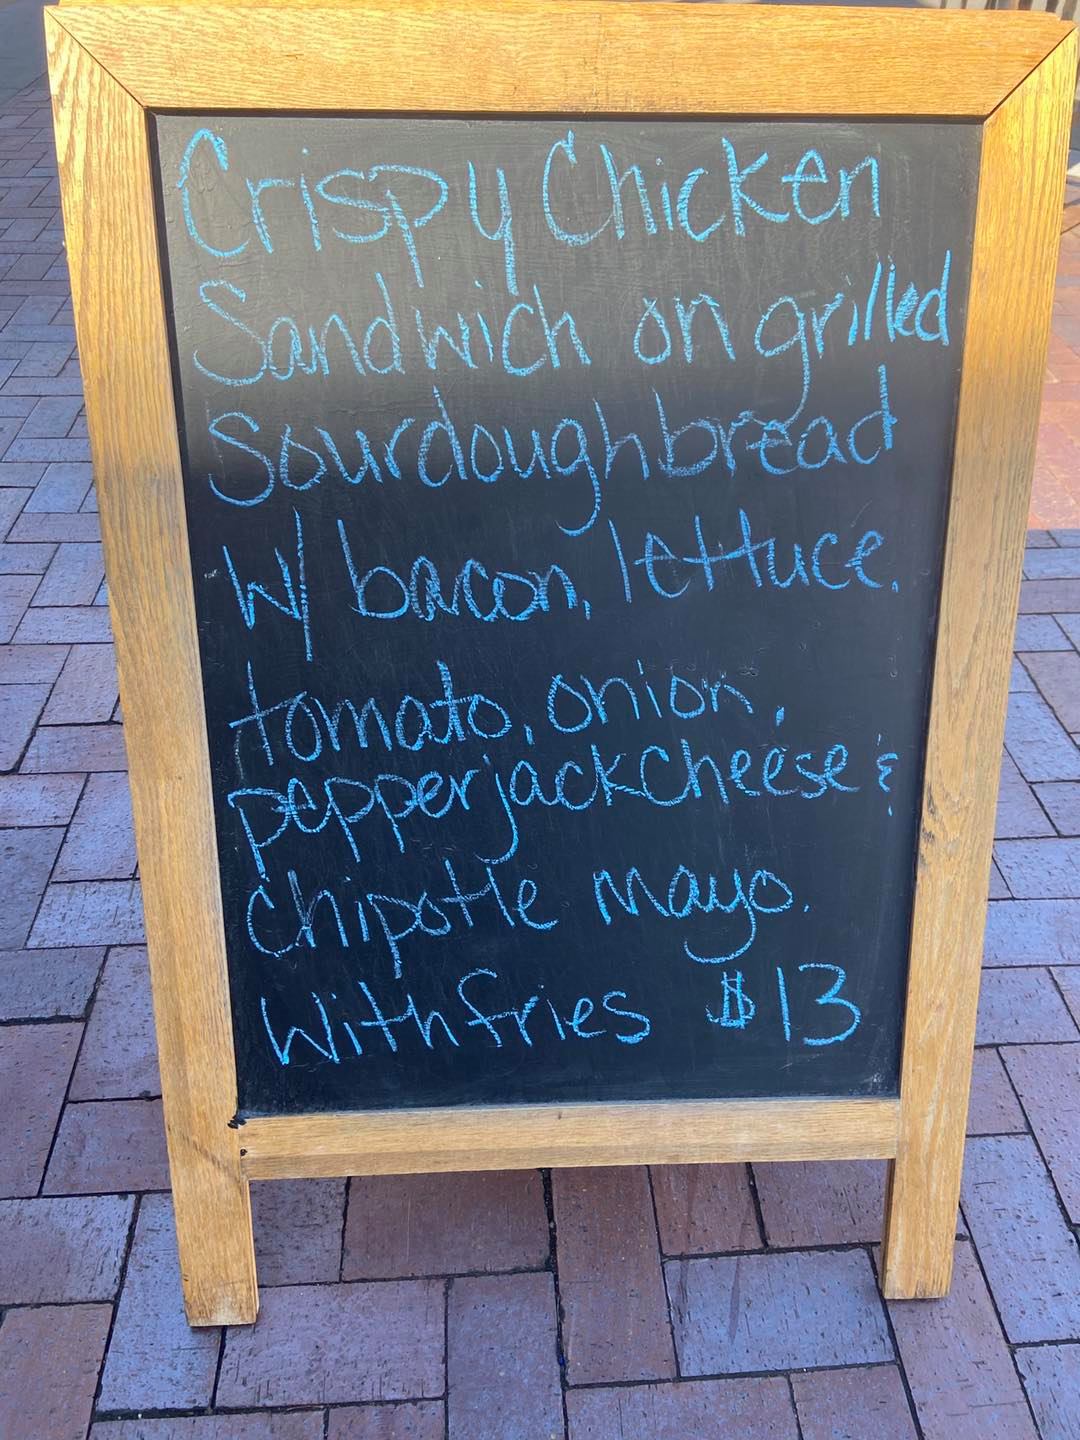 Crispy Chicken
Sandwich on grilled
Sourdough bread
W/ bacon, lettuce,
tomato, onion,
pepperjack cheese &
Chipotle Mayo.
With fries $13